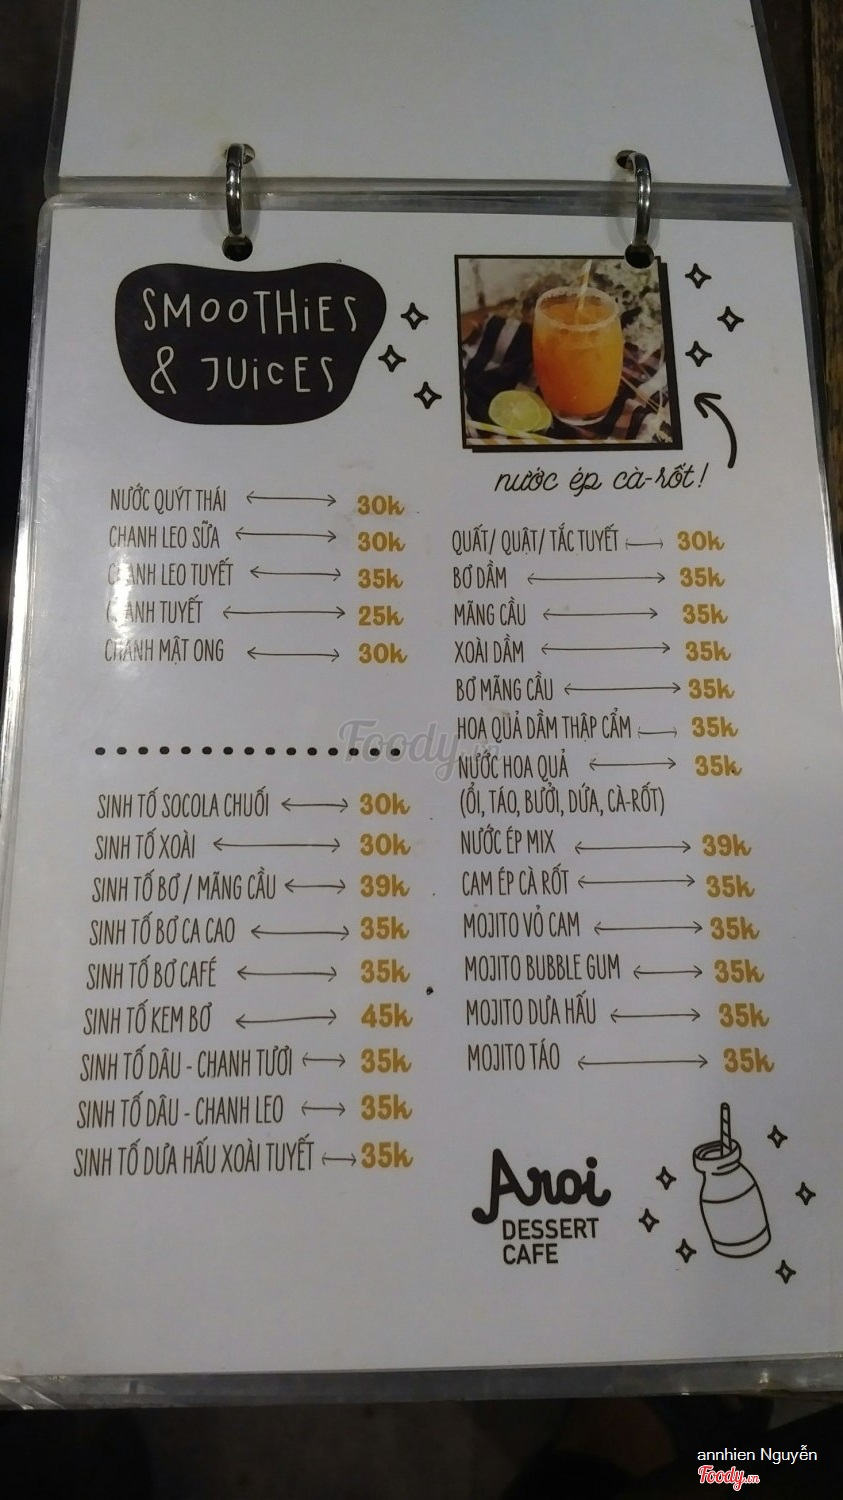 SMOOTHIES
& JUICES
nước ép cà-rốt!
NƯỚC QUÝT THÁI 30k
CHANH LEO SỮA 30k
CHANH LEO TUYẾT 35k
CHANH TUYẾT 25k
CHANH MẬT ONG 30k
SINH TỐ SOCOLA CHUỐI 30k
SINH TỐ XOÀI 30k
SINH TỐ BƠ / MÃNG CẦU 39k
SINH TỐ BƠ CA CAO 35k
SINH TỐ BƠ CAFÉ 35k
SINH TỐ KEM BƠ 45k
SINH TỐ DÂU - CHANH TƯƠI 35k
SINH TỐ DÂU - CHANH LEO 35k
SINH TỐ DƯA HẤU XOÀI TUYẾT 35k
QUẤT/ QUẬT/ TẮC TUYẾT 30k
BƠ DẦM 35k
MÃNG CẦU 35k
XOÀI DẦM 35k
BƠ MÃNG CẦU 35k
HOA QUẢ DẦM THẬP CẨM 35k
NƯỚC HOA QUẢ 35k
(ỔI, TÁO, BƯỞI, DỨA, CÀ-RỐT)
NƯỚC ÉP MIX 39k
CAM ÉP CÀ RỐT 35k
MOJITO VỎ CAM 35k
MOJITO BUBBLE GUM 35k
MOJITO DƯA HẤU 35k
MOJITO TÁO 35k
Aroi
DESSERT
CAFE
Foody.vn
annhien Nguyễn
Foody.vn